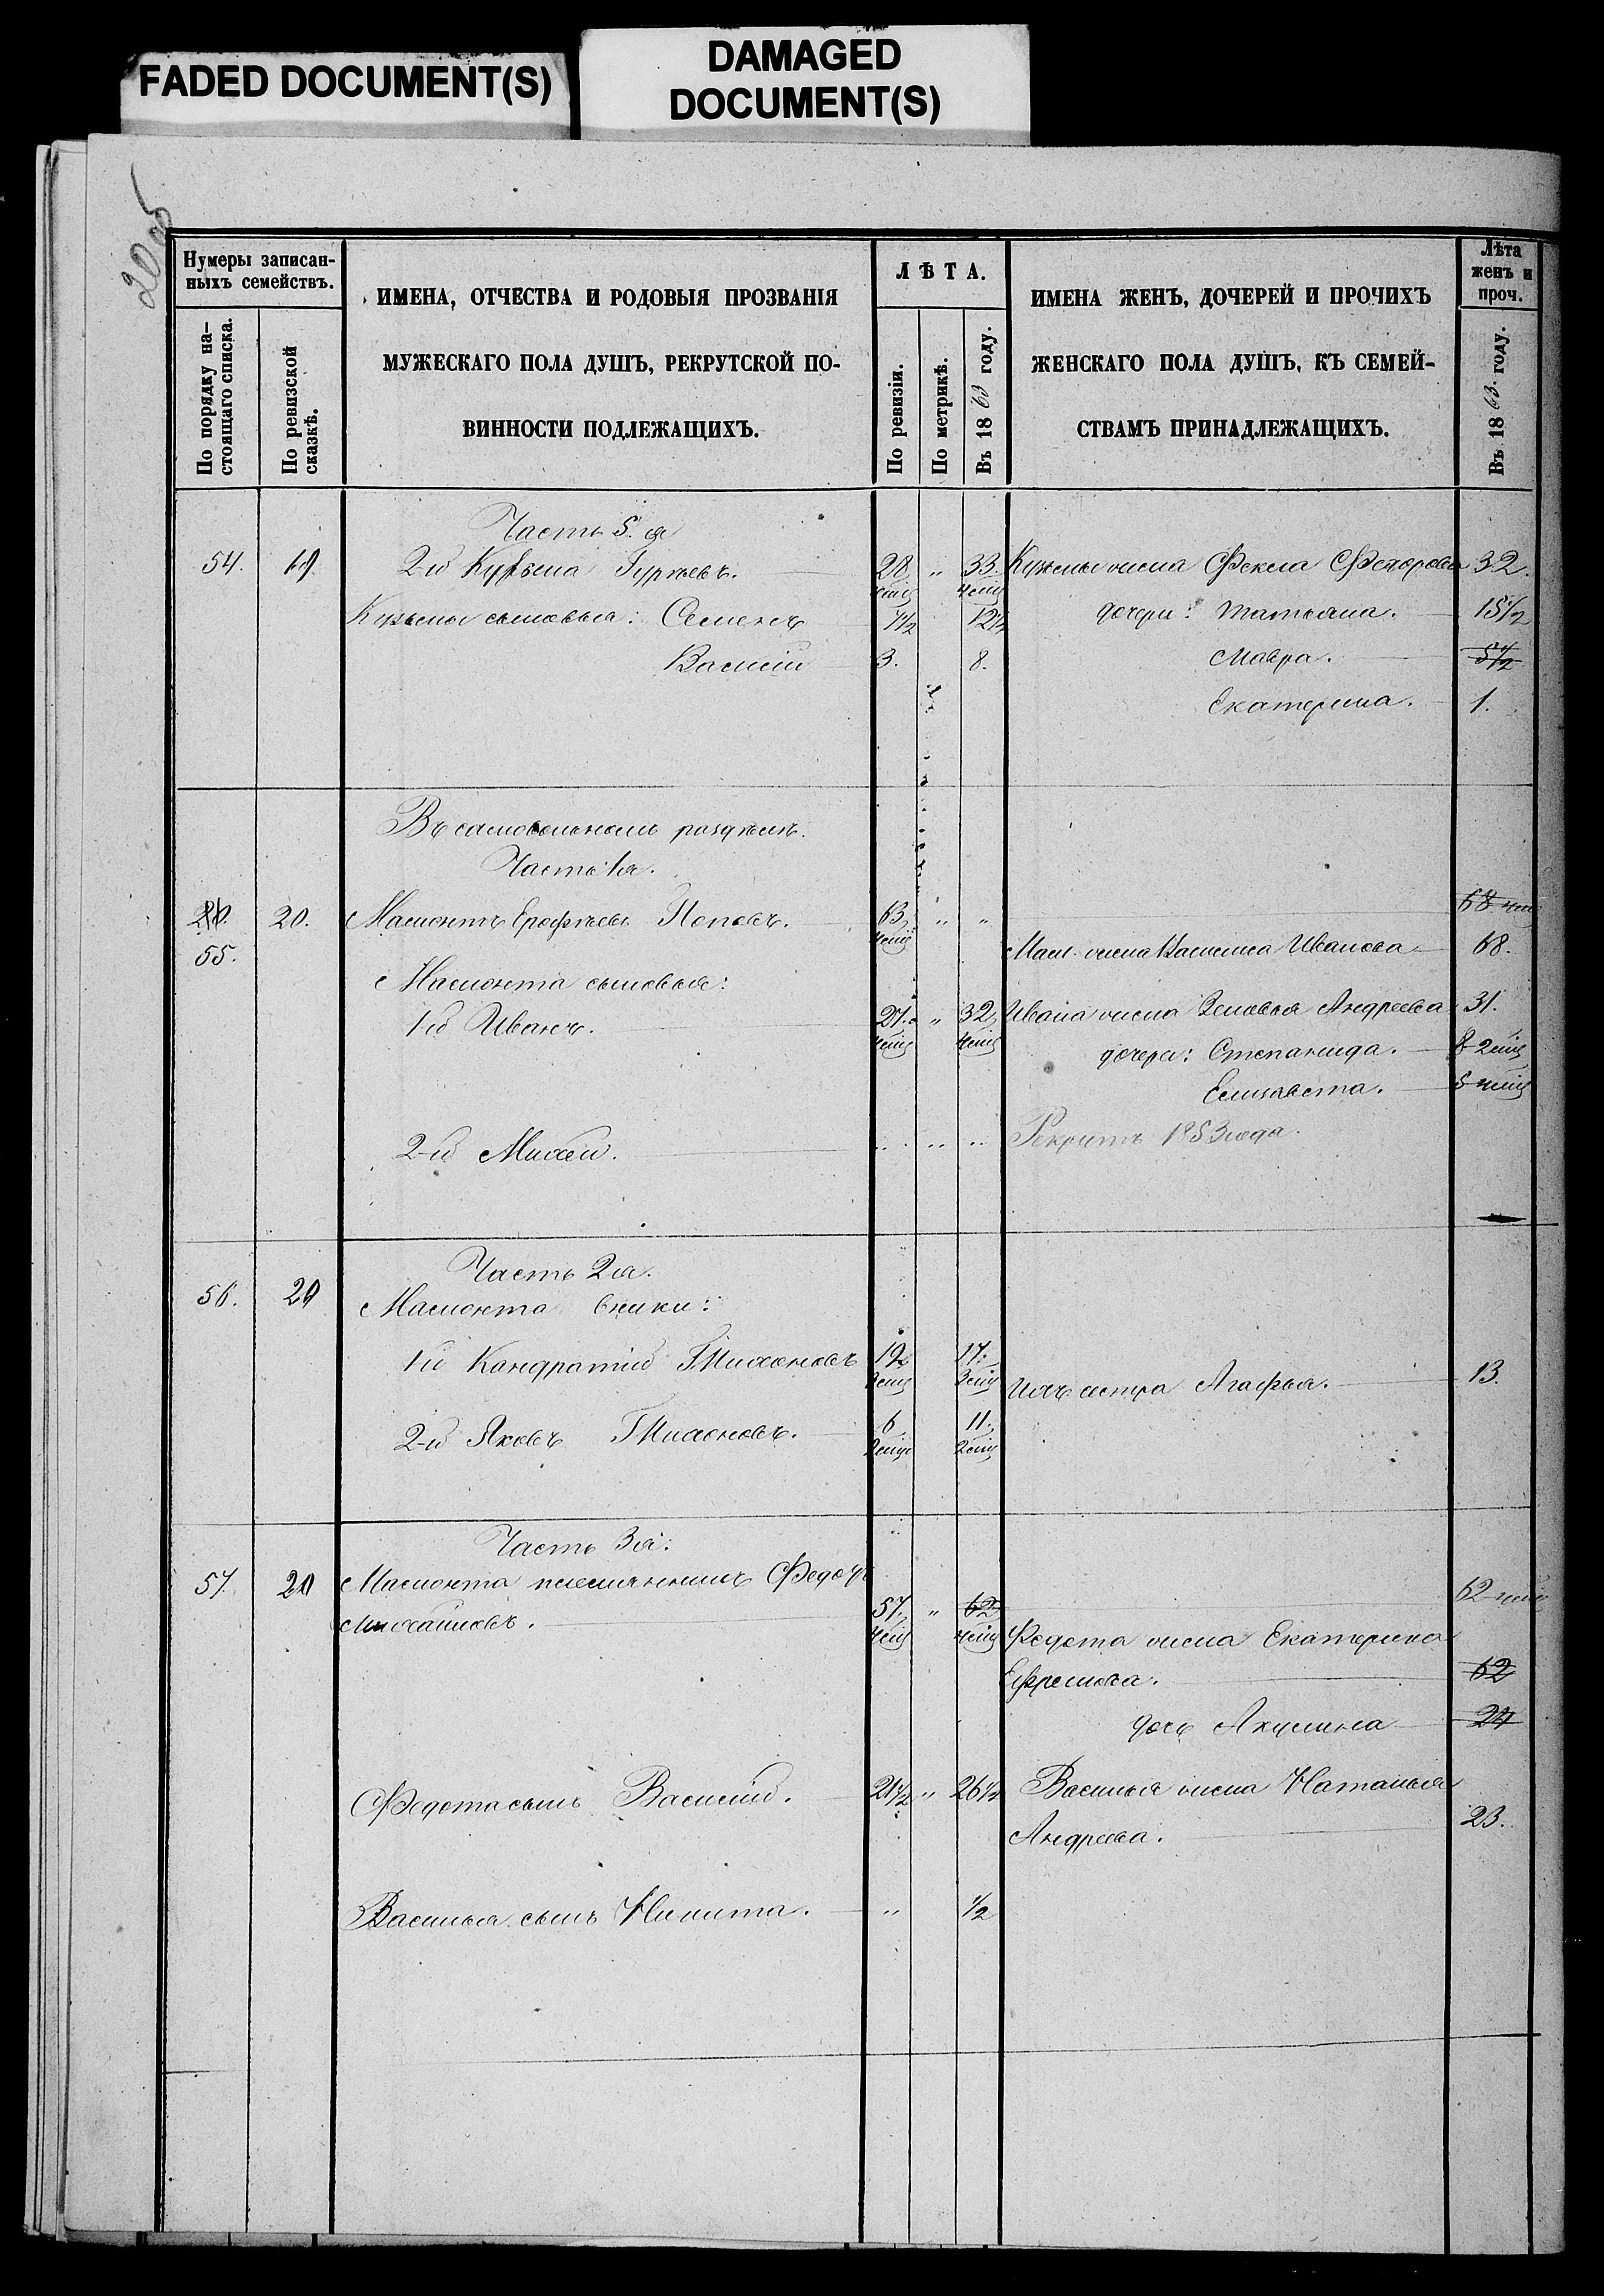 FADED DOCUMENT(S)
DAMAGED
DOCUMENT(S)
20об
Нумеры записан-
ныхъ семействъ.
По порядку на-
стоящаго списка.
По ревизской
сказкѣ.
ИМЕНА, ОТЧЕСТВА И РОДОВЫЯ ПРОЗВАНІЯ
МУЖЕСКАГО ПОЛА ДУШЪ, РЕКРУТСКОЙ ПО-
ВИННОСТИ ПОДЛЕЖАЩИХЪ.
ЛѢТА.
По ревизіи.
По метрикѣ.
Въ 1863 году.
ИМЕНА ЖЕНЪ, ДОЧЕРЕЙ И ПРОЧИХЪ
ЖЕНСКАГО ПОЛА ДУШЪ, КЪ СЕМЕЙ-
СТВАМЪ ПРИНАДЛЕЖАЩИХЪ.
Лѣта
женъ и
проч.
Въ 1863. году.
Часть 5.я
54. 19. 2-й Кузьма Гурьевъ. 28 " 33. Кузьмы жена Фекла Федорова 32.
Кузьмы сыновья: Семенъ 7½ 12½ дочери: Татьяна. 15½
Василій 3. 8. Мавра. 5½
Екатерина. 1.
Въ самовольномъ раздѣлѣ.
Часть 1я.
20. Мамонтъ Ерофѣевъ Поповъ. 63 " " 68
55. Мам. жена Василиса Иванова 68.
Мамонта сыновья:
1й Иванъ. 27. " 32 Ивана жена Зеновья Андреева 31.
дочери: Степанида. 8
Елизавета. 5
2-й Михей. " " " Рекрутъ 1853 года.
Часть 2я.
56. 20 Мамонта внуки:
1й Кондратій Тихоновъ 12 17. Ихъ сестра Агафья. 13.
2-й Яковъ Тихоновъ. 6 11.
Часть 3я:
57. 20 Мамонта племянникъ Федотъ
Михайловъ. 57. " 62 62
Федота жена Екатерина
Ефремова. 62
дочь Акулина 24
Федота сынъ Василій. 21½ " 26½ Василья жена Наталья
Андреева. 23.
Василья сынъ Никита. " ½